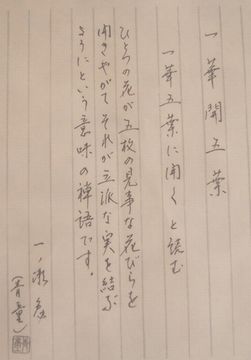 一華開五葉
一華五葉に開くと読む
ひとつの花が五枚の見事な花びらを
開きやがてそれが立派な実を結ぶ
ようにという意味の禅語です。
一ノ瀬
(青童)